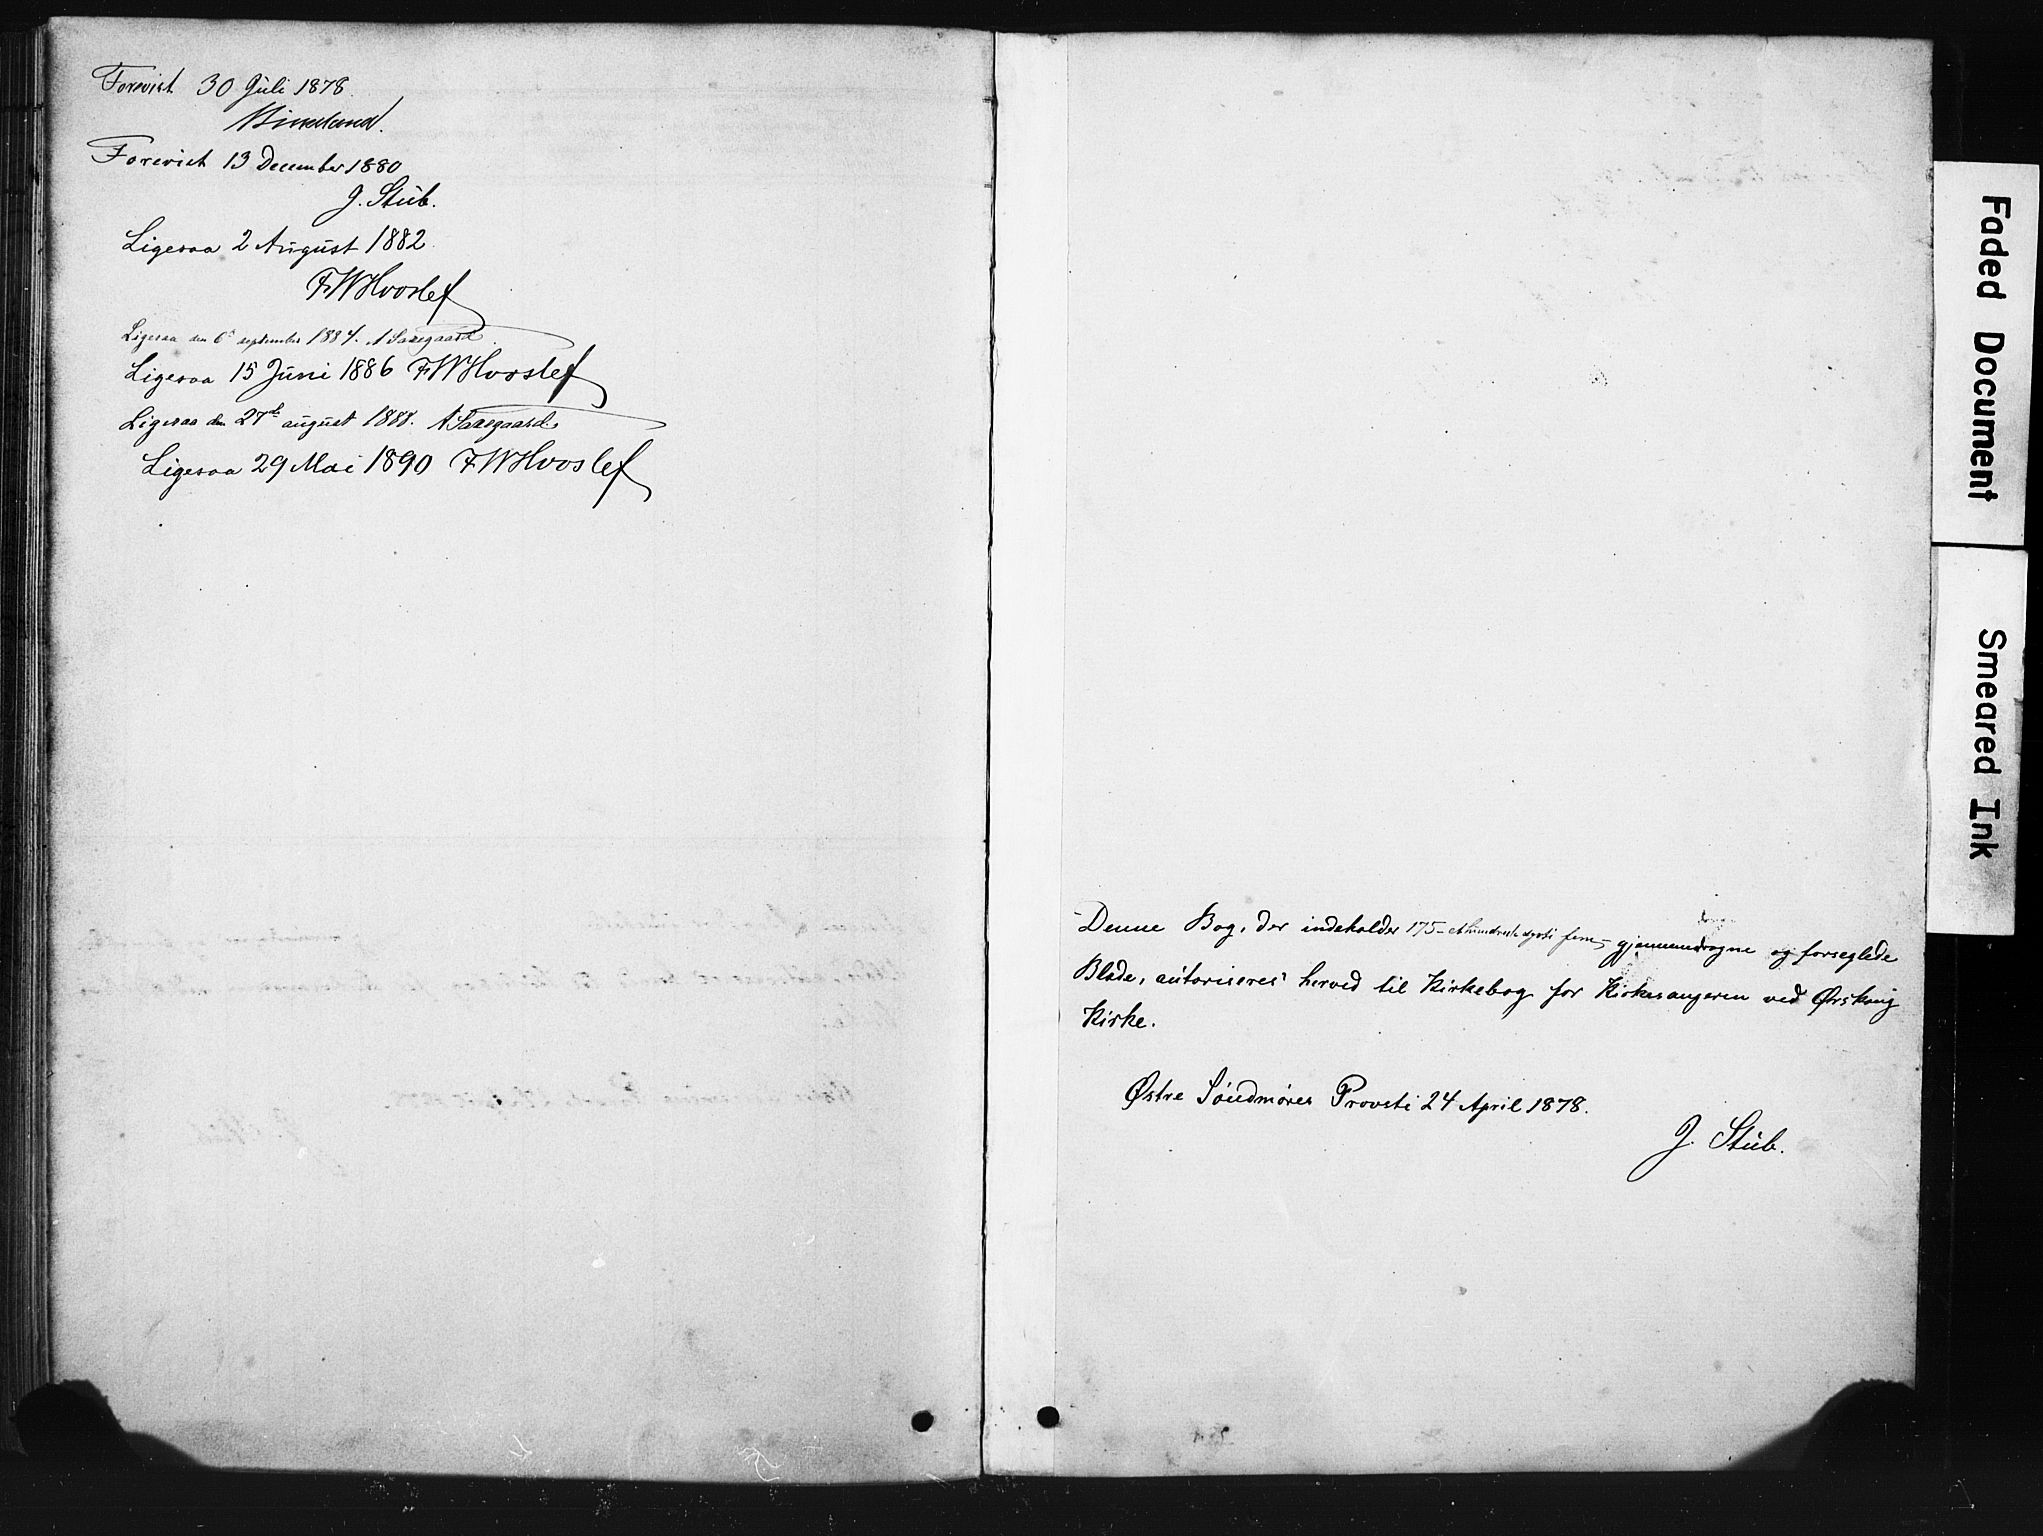 Forevist 30 Juli 1878.
Birkeland.
Forevist 13 December 1880
J. Stub.
Ligesaa 2 August 1882
FWHvoslef
Ligesaa den 6te september 1884. N Saxegaard
Ligesaa 15 Juni 1886 FWHvoslef
Ligesaa den 27de august 1888. N Saxegaard.
Ligesaa 29 Mai 1890 FWHvoslef
Denne Bog, der indeholder 175 - ethundrede sytti fem - gjennemdragne og forseglede
Blade, autoriseres herved til Kirkebog for Kirkesangeren ved Ørskoug
Kirke.
Østre Søndmøres Provsti 24 April 1878.
J. Stub.
Faded Document
Smeared Ink